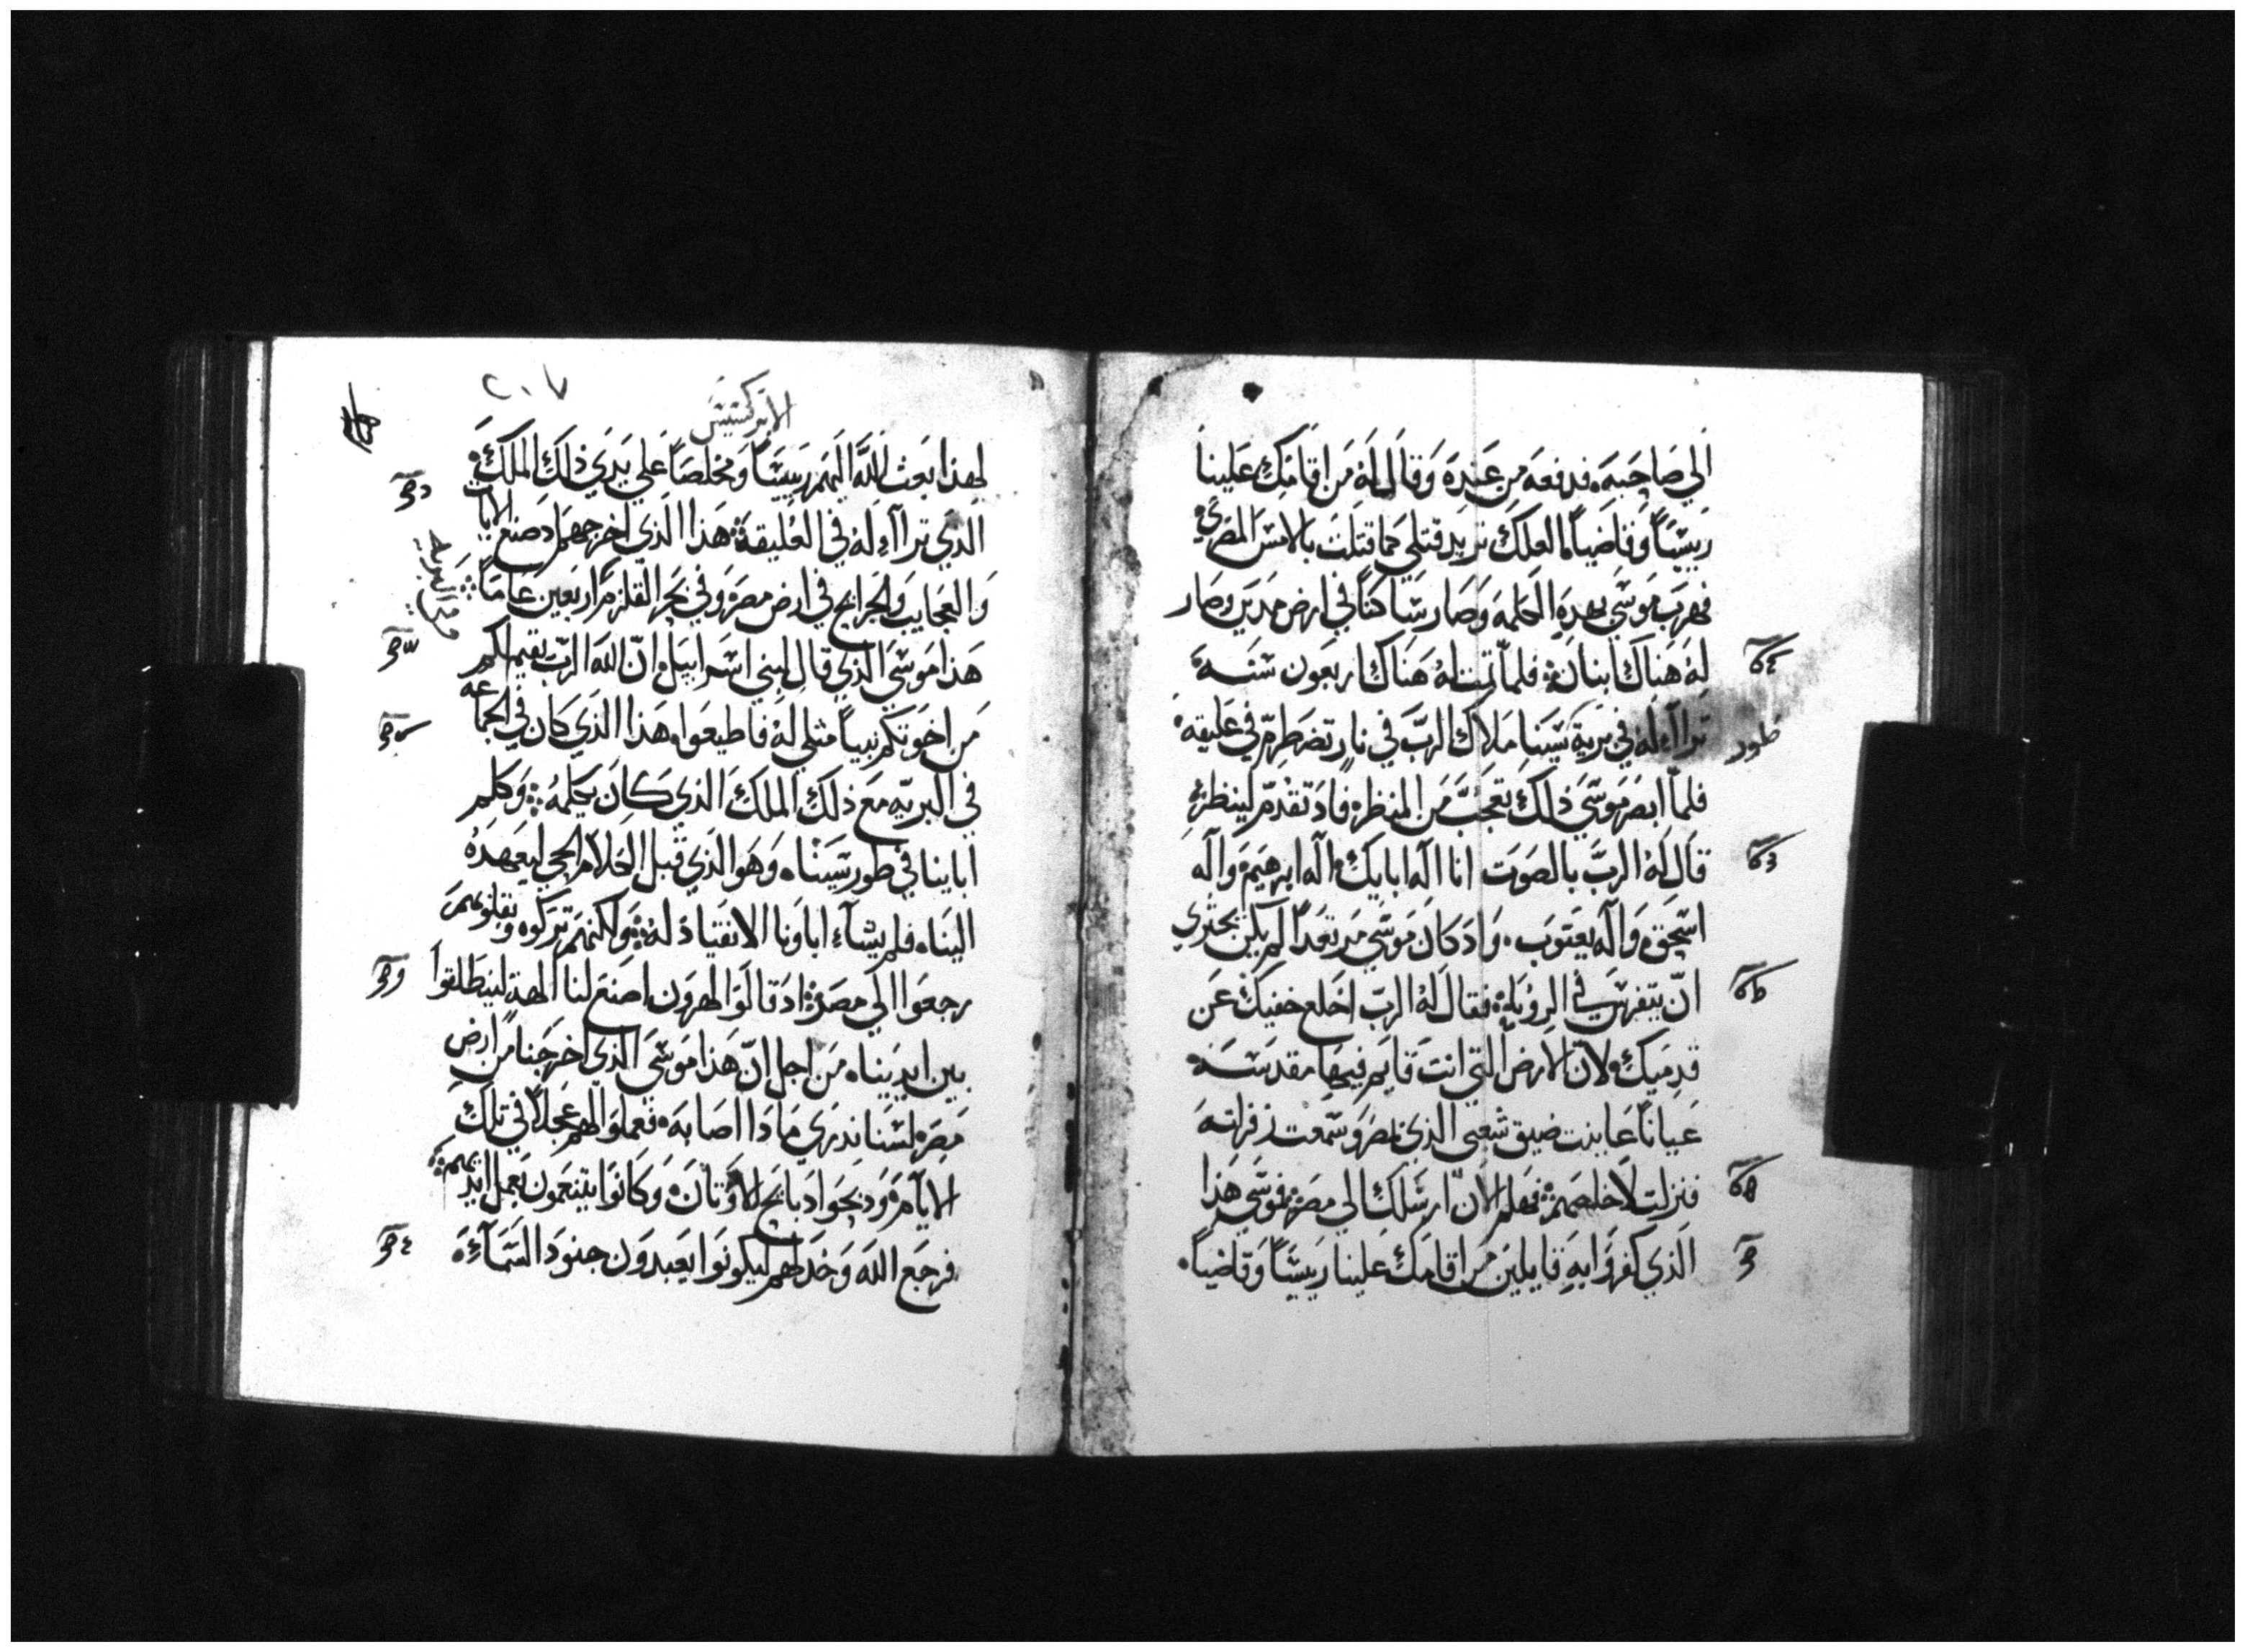 الي صَاحَبَه. فدفعَه مِن عَندِه وَقالَ لهُ مَن اقَامَك عَلينا
رَييسًا وَقاضياً. العلكَ تريد قتلي كما قتلت بالامسَ المصري
فهربَ موسَي بهدهِ الكلمه وَصَار ساكناً في ارض مدين وصار
لهُ هَناك ابنان. فلما تمت لهُ هَناك اربعَون سَنه
تراآء له في برية سَينا ملاك الربَّ في نار تضطرم في عَليقه
فلما ابصر موسَي ذلك تعجّبَ من المنظر. فاد تقدّم لينظر
قال لهُ الربَّ بالصوَت انا الَه ابايك. اله ابرهيم. وَاله
اسَحق. وَاله يعَقوبَ. وَاد كان موسَي مرتعَداً لم يكن يجتري
انّ يتفرسَ في الروياه. فقال لهُ الربّ اخلع خفيك عَن
قدميك. لانّ الارض التي انت قايم فيها مقدسَه
عَياناً عَاينت ضيق شعبي الذي بمصر وَسَمعت زفراته
فنزلت لاخلصهم. فهلم الانّ ارسَلك الي مصر. فموسَي هذا
الذي كفروا به قايلين من اقامك عَلينا رَييسًا وَقاضياً.
طور
٢٠٧
الابركسيس
لهذا بعَث اللَّه اليهم رَييسًا وَمخلصاً عَلي يدي ذلك الملك
الذي تراآء له في العُليقة. هَذا الذي اخرجهم اد صنع الايات
وَالعَجايب وَالجرايح في ارض مصر وَفي بحر القلزم اربَعين عَاماً
هَذا موسَي الذي قال لبني اسَراييل. انّ اللَه الربّ يقيم لكم
مَن اخوَتكم نبياً مثلي لهُ فاطيعَوا. هَذا الذي كان في الجماعه
في البريّه مَع ذلك الملك الذي كان يكلمه. وَكلم
اباينا في طور سَينا. وَهَو الذي قبل الكلام الحي ليعَهده
الينا. فلم يشآء اباونا الانقياد له. وَلكنهَم تركوه وبقلوبهم
رجعَوا الي مصر. اد قالوَا لهرَون اصنعَ لنا الهة لينطلقوا
بين ايدينا. مَن اجل انّ هَذا موسَي الذي اخرجَنا من ارض
مصر. لسَنا ندري مَادا اصَابه. فعملوَا لهم عَجلاً في تلك
الايام. وَدبحَوا دبايح للاوَثان. وَكانوَا يتنعَمون بعَمل ايديهم
فرجعَ اللَه وَخدلهم ليكونوَا يعَبدوَن جنوَد السَمآء.